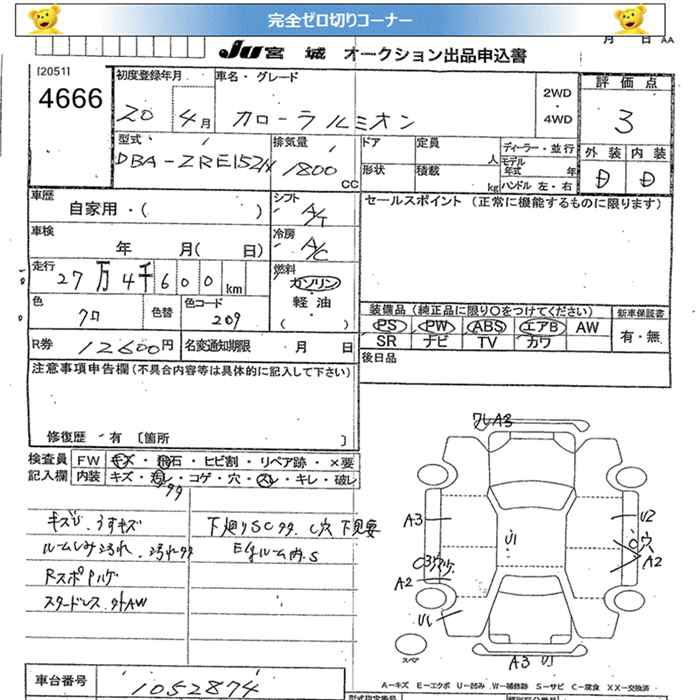 完全ゼロ切りコーナー
月 日 AA
JU 宮 城 オークション出品申込書
[2051]
4666
初度登録年月
20 4月
車名・グレード
カローラルミオン
2WD
・
4WD
評 価 点
3
外 装 内 装
D D
型式
DBA-ZRE152N
排気量
1800
CC
ドア
定員
人
形状
積載
kg
ディーラー・並行
モデル
年式 年
ハンドル 左・右
車歴
自家用・( )
シフト
A/T
セールスポイント (正常に機能するものに限ります)
車検
年 月( 日)
冷房
A/C
走行
27万4千600km
燃料
ガソリン
軽・油
( ・ )
色
クロ
色替
色コード
209
装備品 (純正品に限り○をつけてください)
新車保証書
PS PW ABS エアB AW
有・無
SR ナビ TV カワ
R券 12600円
名変通知期限 月 日
後日品
注意事項申告欄 (不具合内容等は具体的に記入して下さい)
修復歴・有 [箇所 ]
検査員 FW キズ・飛石・ヒビ割・リペア跡・×要
記入欄 内装 キズ・汚レ・コゲ・穴・スレ・キレ・破レ
キズU.うすキズ
下廻りSCタタ.C穴下見要
ルームしみ汚れ.汚れタタ
EgルームサS
RスポPハゲ
スタードレス.外AW
ワレA3
A3
U2
U1
C穴
A2
A2
U1
スペア
A3 U1
A-キズ E-エクボ U-凹み W-補修跡 S-サビ C-腐食 XX-交換済
車台番号
1052874